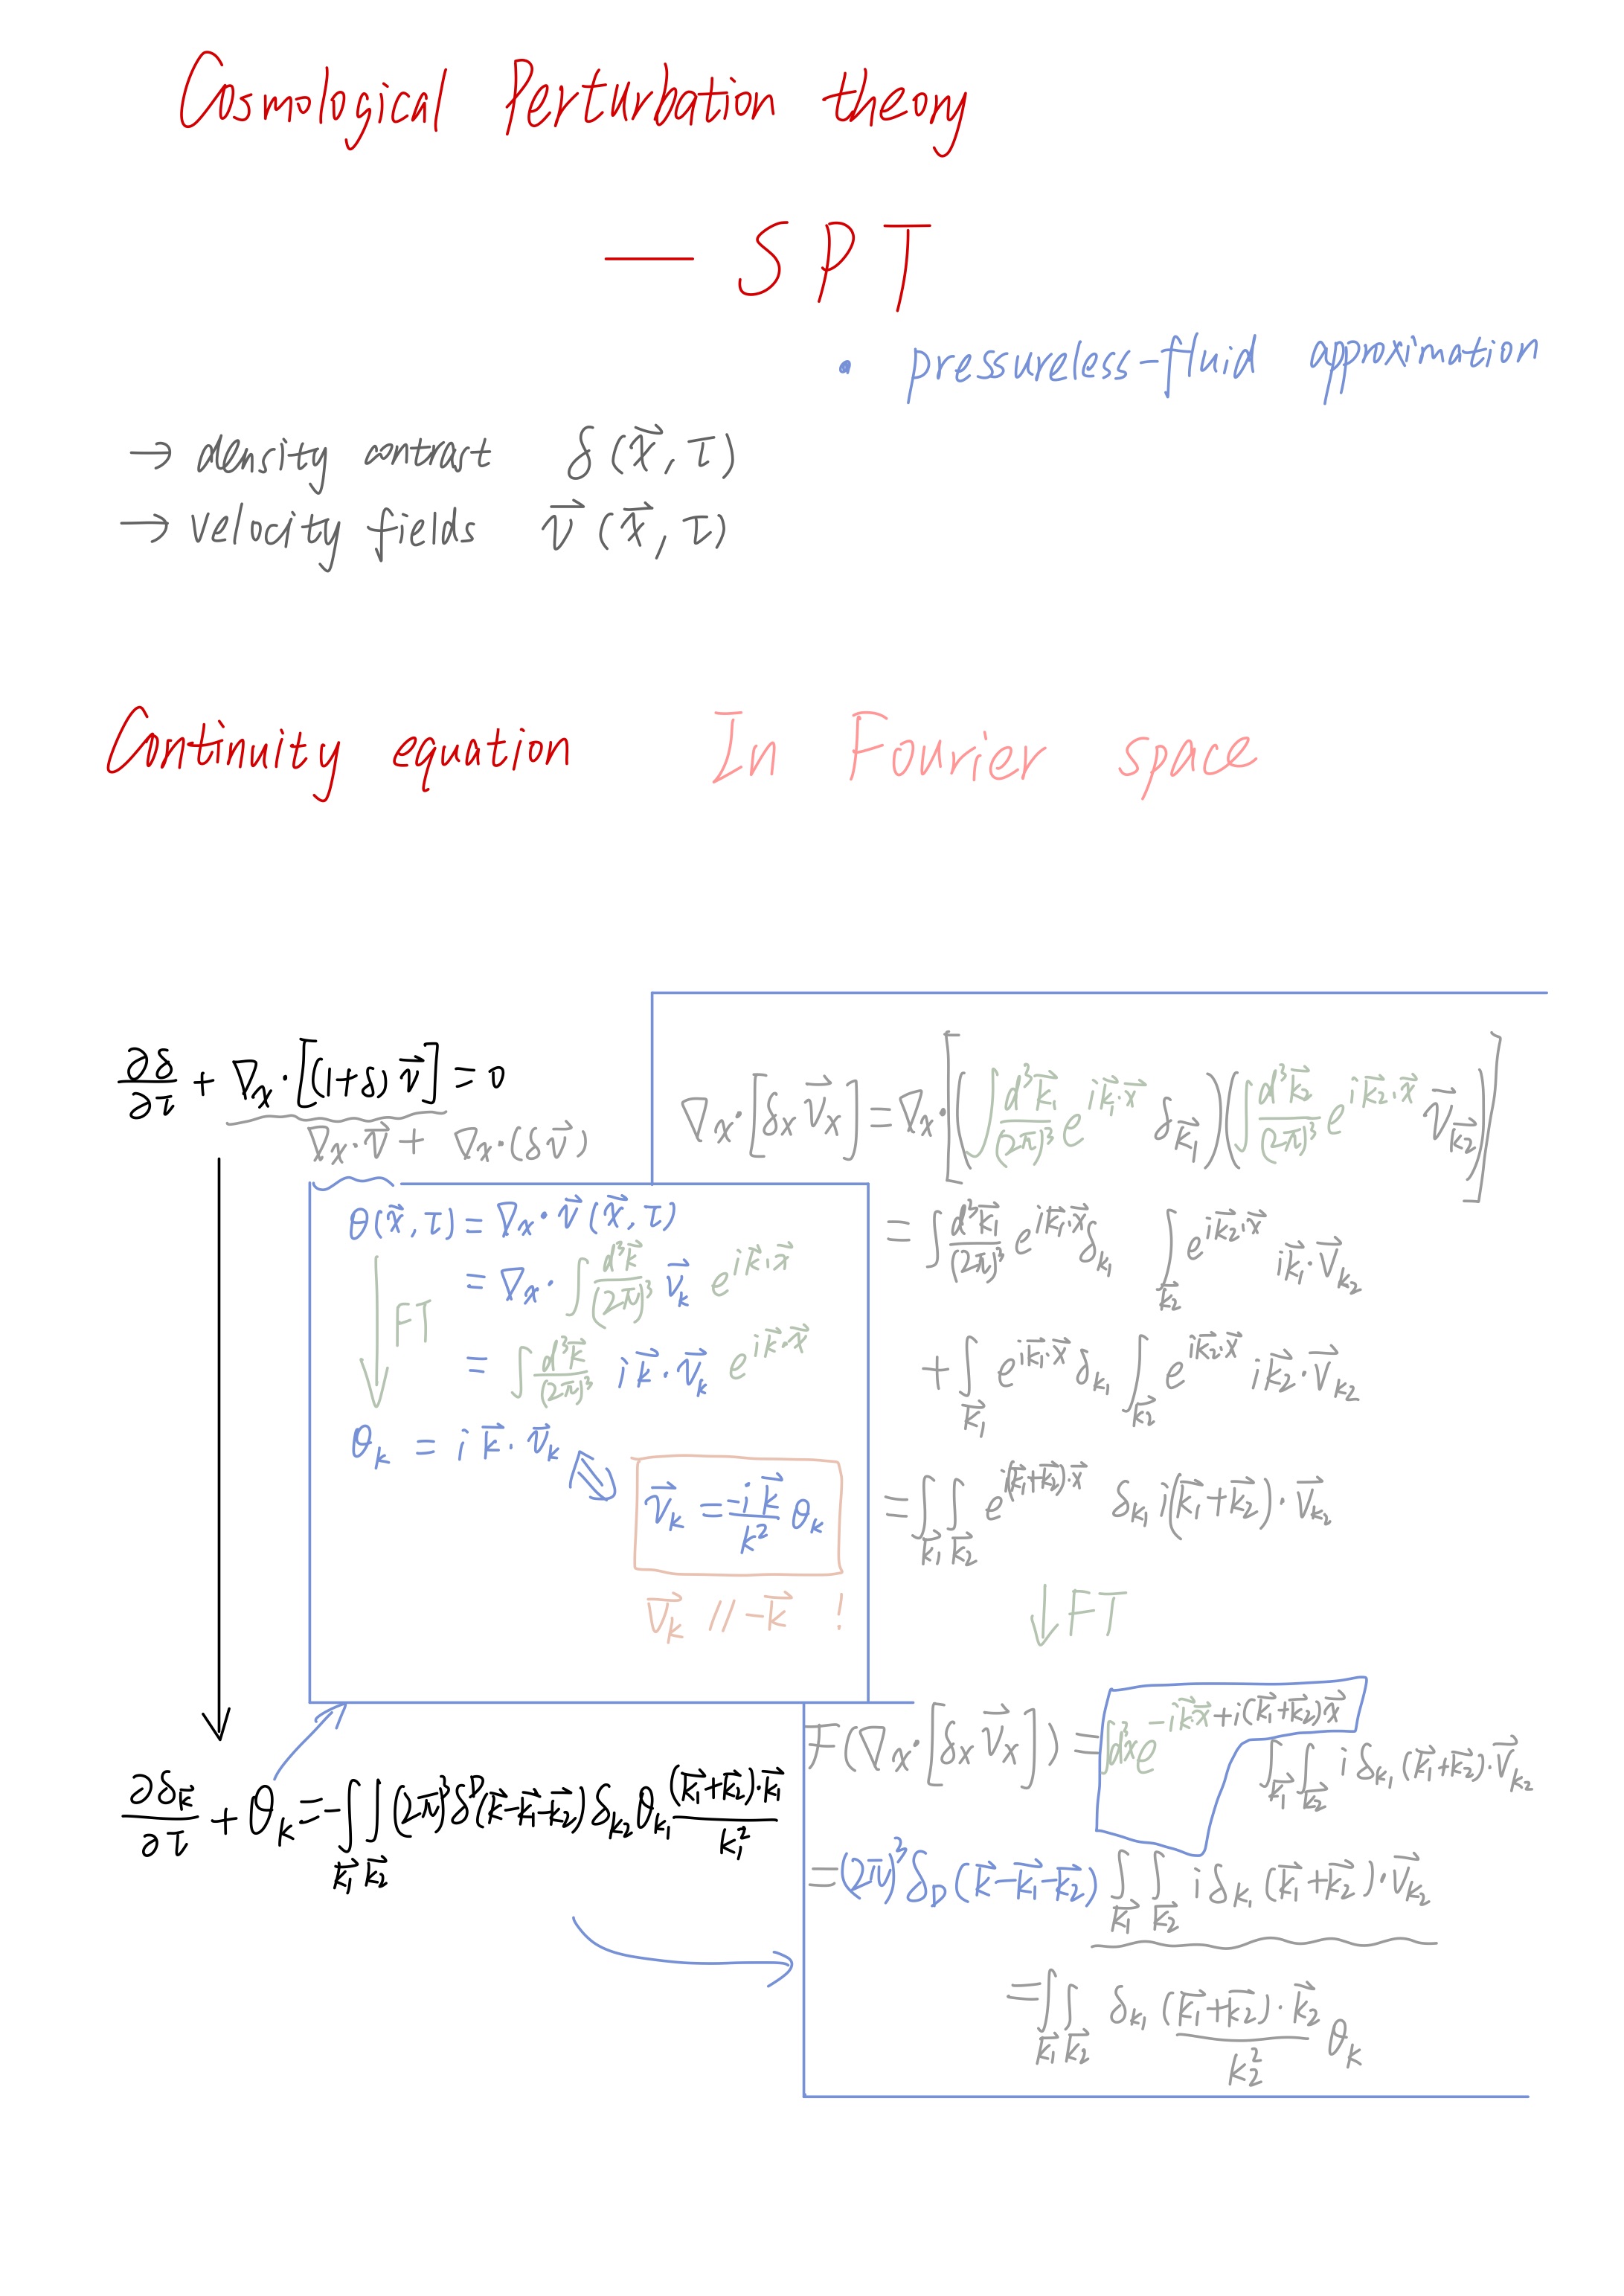 Cosmological Perturbation theory
— SPT
• pressureless-fluid approximation
→ density contrast δ(x⃗, τ)
→ velocity fields v⃗(x⃗, τ)
Continuity equation In Fourier space
∂δ/∂τ + ∇ₓ·[(1+δ)v⃗] = 0
∇ₓ·v⃗ + ∇ₓ·(δv⃗)
θ(x⃗, τ) = ∇ₓ·v⃗(x⃗, τ)
= ∇ₓ·∫ d³k⃗/(2π)³ v⃗_k e^{ik⃗·x⃗}
FT
= ∫ d³k⃗/(2π)³ ik⃗·v⃗_k e^{ik⃗·x⃗}
θ_k = ik⃗·v⃗_k ⇔ v⃗_k = -ik⃗/k² θ_k
v⃗_k // -k⃗ !
∇ₓ·[δₓ v⃗ₓ] = ∇ₓ·[(∫ d³k⃗₁/(2π)³ e^{ik⃗₁·x⃗} δ_{k⃗₁})(∫ d³k⃗₂/(2π)³ e^{ik⃗₂·x⃗} v⃗_{k⃗₂})]
= ∫ d³k⃗₁/(2π)³ e^{ik⃗₁·x⃗} δ_{k₁} ∫_{k⃗₂} e^{ik⃗₂·x⃗} ik⃗₁·v⃗_{k₂}
+ ∫_{k⃗₁} e^{ik⃗₁·x⃗} δ_{k₁} ∫_{k⃗₂} e^{ik⃗₂·x⃗} ik⃗₂·v⃗_{k₂}
= ∫_{k⃗₁}∫_{k⃗₂} e^{i(k⃗₁+k⃗₂)·x⃗} δ_{k₁} i(k⃗₁+k⃗₂)·v⃗_{k₂}
↓FT
F(∇ₓ·[δₓ v⃗ₓ]) = ∫d³x e^{-ik⃗·x⃗+i(k⃗₁+k⃗₂)x⃗} ∫_{k⃗₁}∫_{k⃗₂} i δ_{k₁}(k⃗₁+k⃗₂)·v⃗_{k₂}
= (2π)³ δ_D(k⃗-k⃗₁-k⃗₂) ∫_{k⃗₁}∫_{k⃗₂} i δ_{k₁}(k⃗₁+k⃗₂)·v⃗_{k₂}
= ∫_{k⃗₁}∫_{k⃗₂} δ_{k₁} (k⃗₁+k⃗₂)·k⃗₂/k₂² θ_k
∂δ_{k⃗}/∂τ + θ_k = -∫_{k⃗₁}∫_{k⃗₂} (2π)³ δ^D(k⃗-k⃗₁-k⃗₂) δ_{k₂} θ_{k₁} (k⃗₁+k⃗₂)·k⃗₁/k₁²